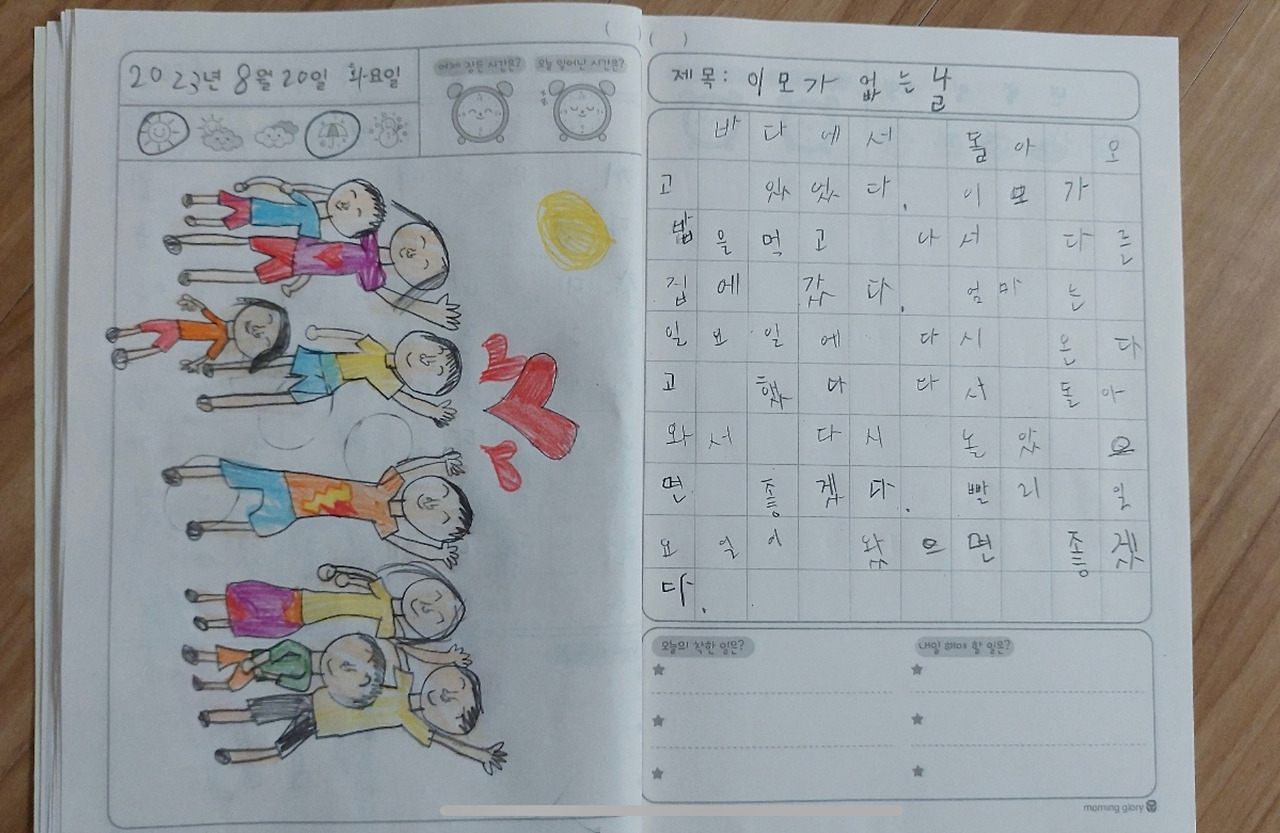 2023년 8월 20일 화요일
어제 잠든 시간은? 오늘 일어난 시간은?
( )
( )
제목: 이모가 없는 날
바다에서 돌아 오
고 있었다. 이모가
밥을 먹고 나서 다른
집에 갔다. 엄마는
일요일에 다시 온다
고 했다 다시 돌아
와서 다시 놀았으
면 좋겠다. 빨리 일
요일이 왔으면 좋겠
다.
오늘의 착한 일은? 내일 해야 할 일은?
morning glory